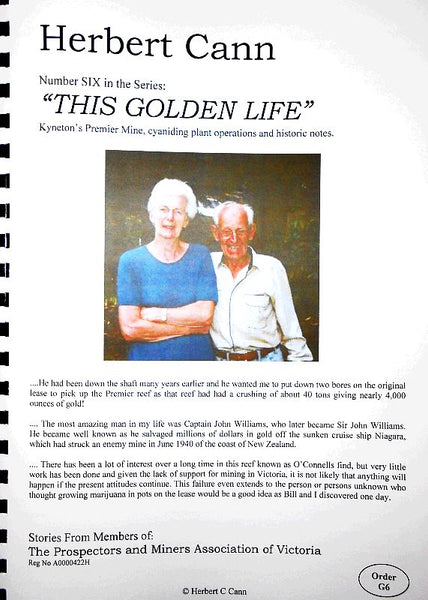 Herbert Cann
Number SIX in the Series:
“THIS GOLDEN LIFE”
Kyneton's Premier Mine, cyaniding plant operations and historic notes.
....He had been down the shaft many years earlier and he wanted me to put down two bores on the original
lease to pick up the Premier reef as that reef had had a crushing of about 40 tons giving nearly 4,000
ounces of gold!
.... The most amazing man in my life was Captain John Williams, who later became Sir John Williams.
He became well known as he salvaged millions of dollars in gold off the sunken cruise ship Niagara,
which had struck an enemy mine in June 1940 of the coast of New Zealand.
.... There has been a lot of interest over a long time in this reef known as O'Connells find, but very little
work has been done and given the lack of support for mining in Victoria, it is not likely that anything will
happen if the present attitudes continue. This failure even extends to the person or persons unknown who
thought growing marijuana in pots on the lease would be a good idea as Bill and I discovered one day.
Stories From Members of:
The Prospectors and Miners Association of Victoria
Reg No A0000422H
Order
G6
© Herbert C Cann